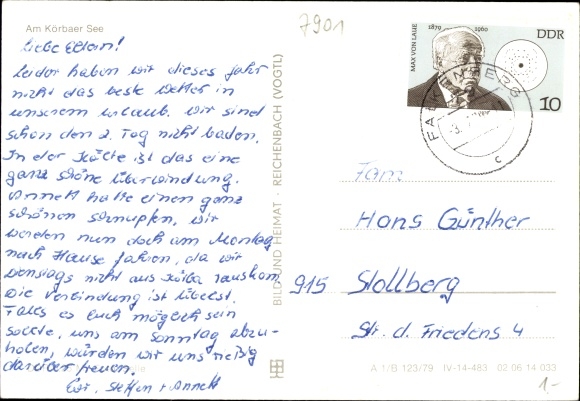 Am Körbaer See
7901
Liebe Eltern!
Leider haben wir dieses Jahr
nicht das beste Wetter in
unserem Urlaub. Wir sind
schon den 2. Tag nicht baden.
In der Kälte ist das eine
ganz schöne Überwindung.
Annett hatte einen ganz
schönen Schnupfen. Wir
werden nun doch am Montag
nach Hause fahren, da wir
Dienstags nicht aus Körba rauskom.
Die Verbindung ist überst.
Falls es Euch möglich sein
sollte, uns am Sonntag abzu-
holen, würden wir uns riesig
darüber freuen.
Steffen + Annett
BILD UND HEIMAT · REICHENBACH (VOGTL)
MAX VON LAUE
1879 1960
DDR
10
FALKENBERG
c
Fam
Hans Günther
915 Stollberg
Str. d. Friedens 4
A 1/B 123/79 IV-14-483 02 06 14 033
1.-